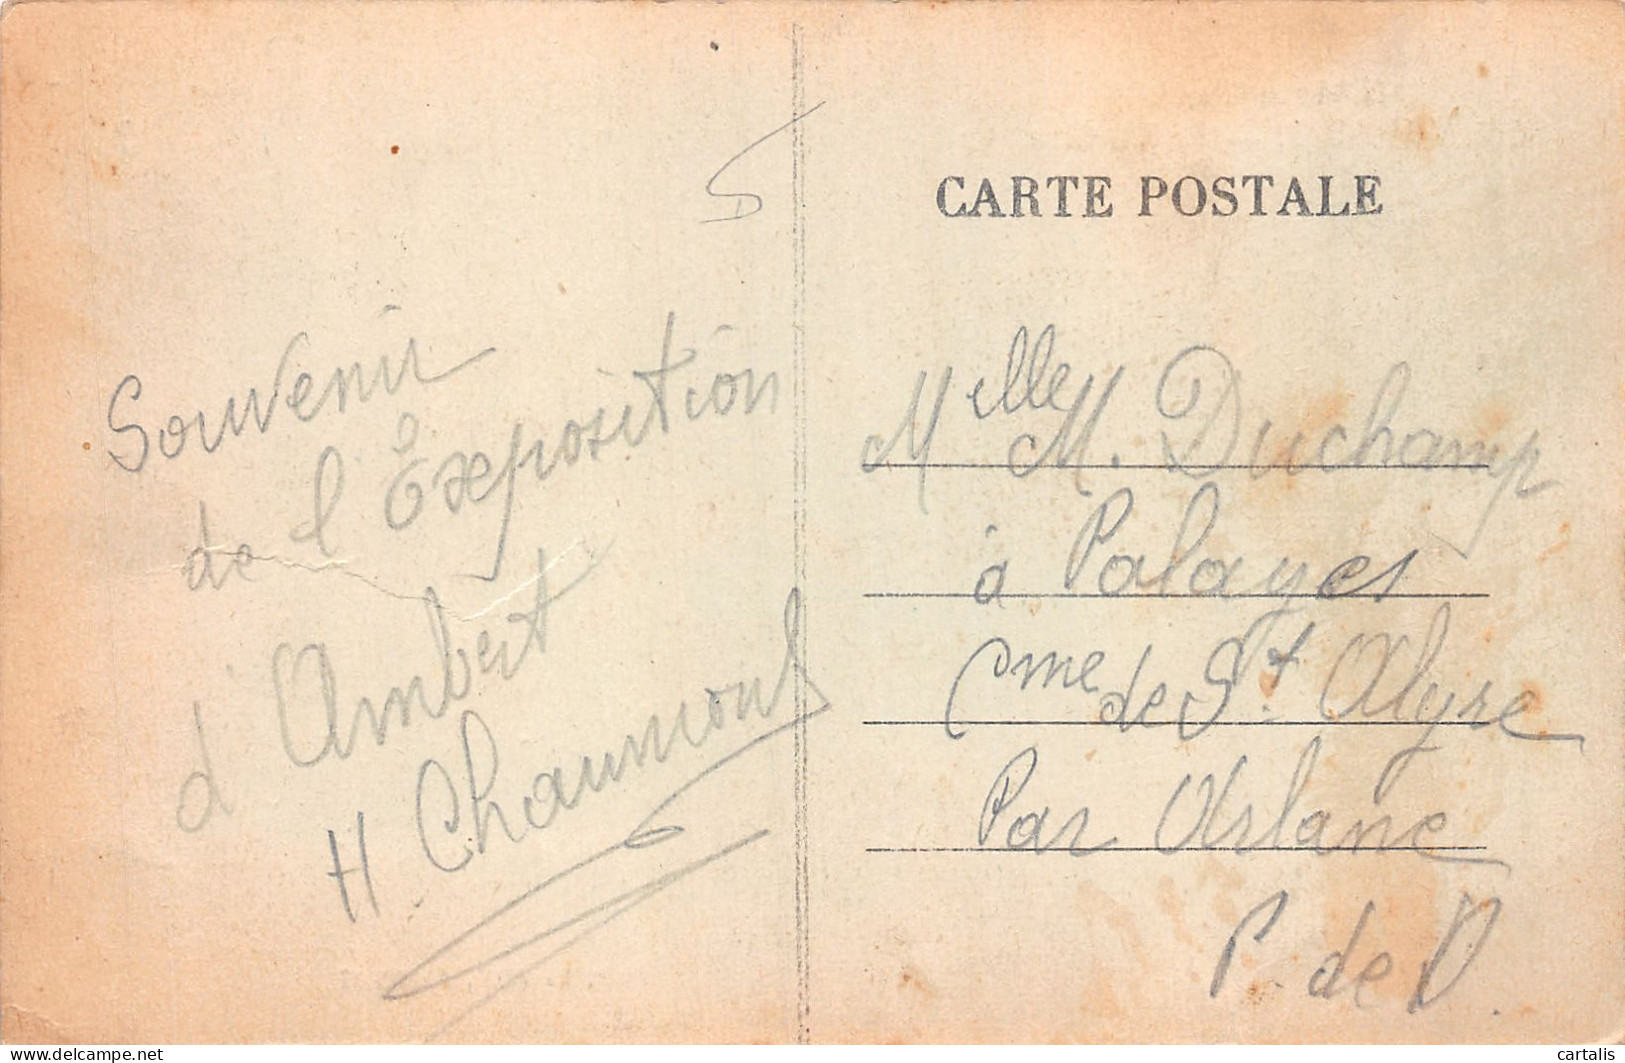 CARTE POSTALE
5
Souvenir
de l'Exposition
d'Ambert
H Chaumont
Melle M. Duchamp
à Palayes
Cme de St. Alyre
Par Arlanc
P. de D.
delcampe.net
cartalis